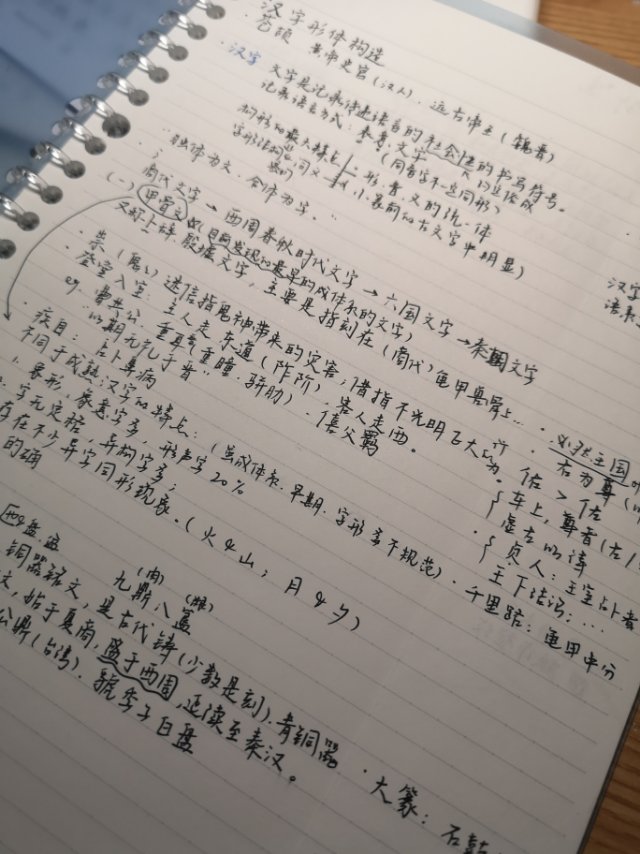 汉字形体构造
苍颉 黄帝史官(汉人). 远古帝王(魏晋)
汉字 文字是记录传递语言的社会性的书写符号。
记录语言方式:表音.文字
(同音字不一定同形)
构形的最大特点 形.音.义的统一体
小篆前的古文字中明显)
"独体为文,合体为字。"
商代文字→西周春秋时代文字→六国文字→秦朝文字
(一)甲骨文(目前发现的最早的成体系的文字)
又称卜辞.殷墟文字,主要是指刻在(商代)龟甲兽骨上…
祟 迷信指鬼神带来的灾害,借指不光明正大行为。
登堂入室:主人走东道(阼阶),客人走西。
eg. 曹共公.重耳(重瞳.骈肋).僖父羁
以期无礼于晋"
疾目:占卜鼻病
不同于成熟汉字的特点:(虽成体系.早期.字形多不规范)
1. 象形,表意字多,形声字20%
字无定格,异构字多;
存在不少异字同形现象。(火&山;月&夕)
的确
必然王国
右为尊
佐>佐
车上,尊者(左
虚左以待
贞人:王室占卜者
王下结论:…
千里路:龟甲中分
汉字
语素
九鼎八簋
铜器铭文,是古代铸(少数是刻).青铜器
文,始于夏商,盛于西周,延续至秦汉。
公鼎(台湾).虢季子白盘
大篆:石鼓